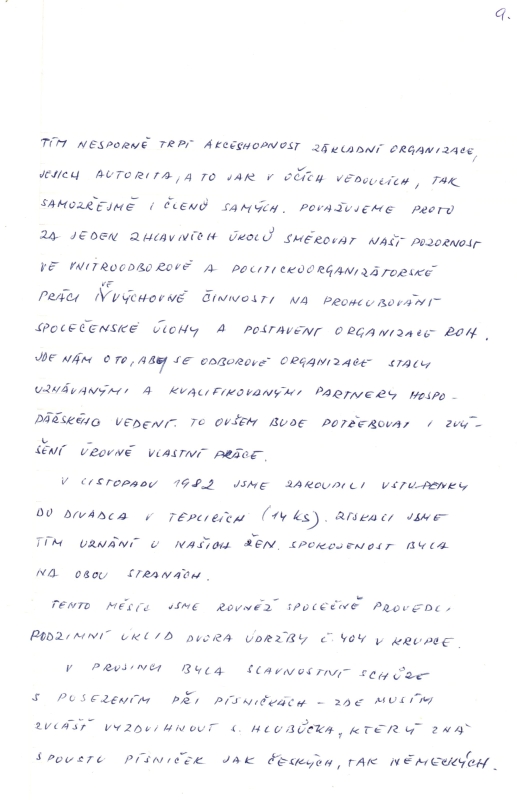 9.
TÍM NESPORNĚ TRPÍ AKCESHOPNOST ZÁKLADNÍ ORGANIZACE,
JEJICH AUTORITA, A TO JAK V OČÍCH VEDOUCÍCH, TAK
SAMOZŘEJMĚ I ČLENŮ SAMÝCH. POVAŽUJEME PROTO
ZA JEDEN Z HLAVNÍCH ÚKOLŮ SMĚROVAT NAŠÍ POZORNOST
VE VNITROODBOROVÉ A POLITICKOORGANIZÁTORSKÉ
PRÁCI VE VÝCHOVNÉ ČINNOSTI NA PROHLUBOVÁNÍ
SPOLEČENSKÉ ÚLOHY A POSTAVENÍ ORGANIZACE ROH.
JDE NÁM O TO, ABY SE ODBOROVÉ ORGANIZACE STALY
UZNÁVANÝMI A KVALIFIKOVANÝMI PARTNERY HOSPO-
DÁŘSKÉHO VEDENÍ. TO OVŠEM BUDE POTŘEBOVAT I ZVÝ-
ŠENÍ ÚROVNĚ VLASTNÍ PRÁCE.
V LISTOPADU 1982 JSME ZAKOUPILI VSTUPENKY
DO DIVADLA V TEPLICÍCH (14 ks). ZÍSKALI JSME
TÍM UZNÁNÍ U NAŠICH ŽEN. SPOKOJENOST BYLA
NA OBOU STRANÁCH.
TENTO MĚSÍC JSME ROVNĚŽ SPOLEČNĚ PROVEDLI
PODZIMNÍ ÚKLID DVORA ÚDRŽBY Č. 404 V KRUPCE.
V PROSINCI BYLA SLAVNOSTNÍ SCHŮZE
S POSEZENÍM PŘI PÍSNIČKÁCH – ZDE MUSÍM
ZVLÁŠŤ VYZDVIHNOUT S. HLUBŮČKA, KTERÝ ZNÁ
SPOUSTU PÍSNIČEK JAK ČESKÝCH, TAK NĚMECKÝCH.